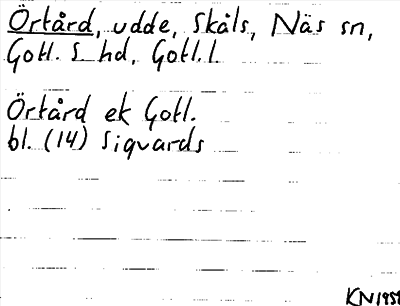 Örtård, udde, Skåls, Näs sn,
Gotl. S hd, Gotl. l.
Örtård ek Gotl.
bl. (14) Sigvards
KN 1951